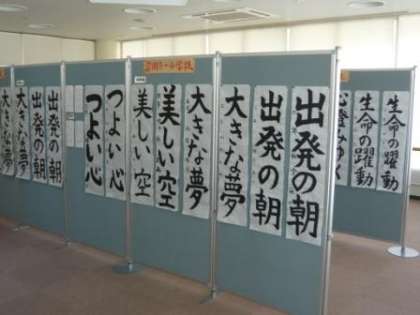 生命の躍動
生命の躍動
出発の朝
出発の朝
大きな夢
大きな夢
美しい空
美しい空
つよい心
つよい心
出発の朝
出発の朝
大きな夢
大きな夢
小学校